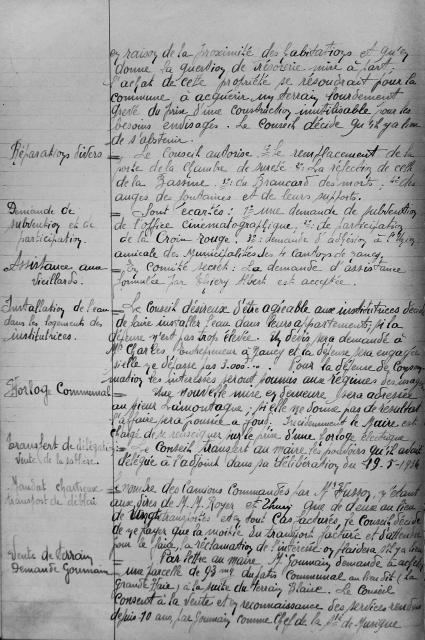 en raison de la proximité des habitations et qu'en
donne la question de voirie mise à part
l'achat de cette propriété se résoudrait pour la
commune à acquérir un terrain lourdement
grevé du prix d'une construction inutilisable pour les
besoins envisagés. Le Conseil décide qu'il y a lieu
de s'abstenir.
Réparations divers = Le Conseil autorise 1° le remplacement de la
porte de la Chambre de sureté 2° La réfection de celle
de la 3° du Brancard des morts : 4° des
auges de fontaines et de leurs supports.
Demande de
subvention et de
participation.
= Sont écartés : 1° une demande de subvention
de l'office cinématographique, 2° de participation
de la Croix rouge. 3° demande d'adhésion à
amicale des Municipalités des 4 cantons de Nancy
Assistance aux
vieillards.
= En Comité secret : La demande d'assistance
formulée par Thiery Albert est acceptée.
Installation de l'eau
dans les logements des
institutrices.
= Le Conseil désireux d'être agréable aux institutrices décide
de faire installer l'eau dans leurs appartements, si la
dépense n'est pas trop élevée. Un devis sera demandé à
Mr Charles Entrepreneur à Nancy et la dépense sera engagée
si elle ne dépasse pas 3.000... Pour la dépense de consom-
mation les intéressés seront soumis aux régimes des usagers
Horloge Communal
= Une nouvelle mise en demeure sera adressée
au sieur ; si elle ne donne pas de resultat
l'affaire sera portée à Incidemment le Maire est
chargé de se renseigner sur le prix d'une horloge électrique
Transfert de délégation
vente de la sablière.
= Le Conseil transfert au maire les pouvoirs qu'il avait
délégué à l'adjoint dans sa délibération du 19.5-19
Mandat
transport de déblai
= nombre des camions commandés par Mr Husson, y étant
aux dires de M.M. Royer et que de deux au lieu
de Vingt transportées et sont Cas facturés, le Conseil décide
de ne payer que la moitié du transport facturé et d'attendre
pour la suite, la réclamation de l'intéressé on plaidera s'il y a lieu
Vente de Terrain
Demande Gounain
= Par lettre au maire, Mr Gounain demande à acheter
une parcelle de 93 mq du patis communal au lieu dit (La
Grande Haie) à la suite du terrain Blaise. Le Conseil
Consent à la vente et en reconnaissance des services rendus
depuis 10 ans par Gounain comme Chef de la Sté de Musique